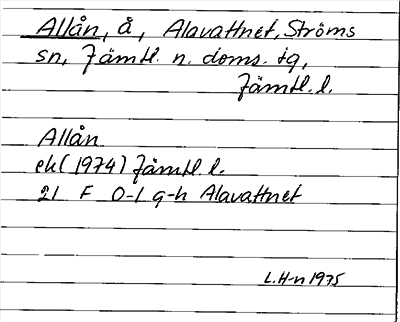 Allån, å, Alavattnet, Ströms
sn, Jämtl. n. doms. tg,
Jämtl. l.
Allån
ek (1974) Jämtl. l.
21 F 0-1 g-h Alavattnet
L.H-n 1975